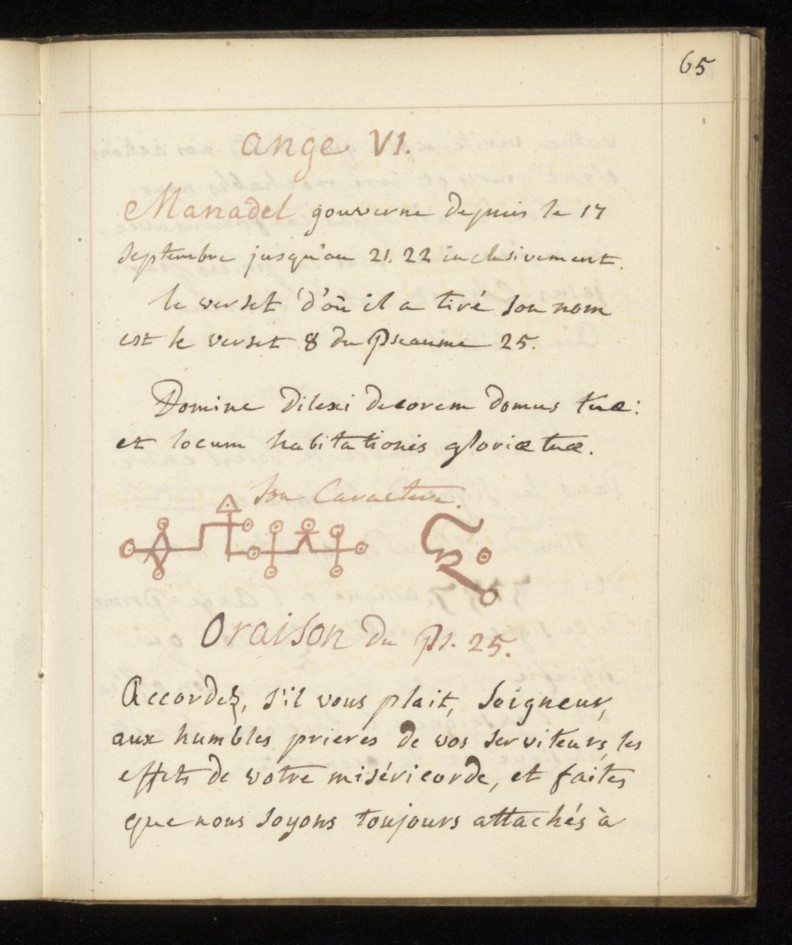 65
Ange VI.
Manadel gouverne depuis le 17
septembre jusqu'au 21. 22 inclusivement.
le verset d'où il a tiré son nom
est le verset 8 du Pseaume 25.
Domine dilexi decorem domus tuæ:
et locum habitationis gloriæ tuæ.
Son Caractere.
Oraison du ps. 25.
Accordez, s'il vous plait, Seigneur,
aux humbles prieres de vos serviteurs, les
effets de votre miséricorde, et faites
que nous soyons toujours attachés à